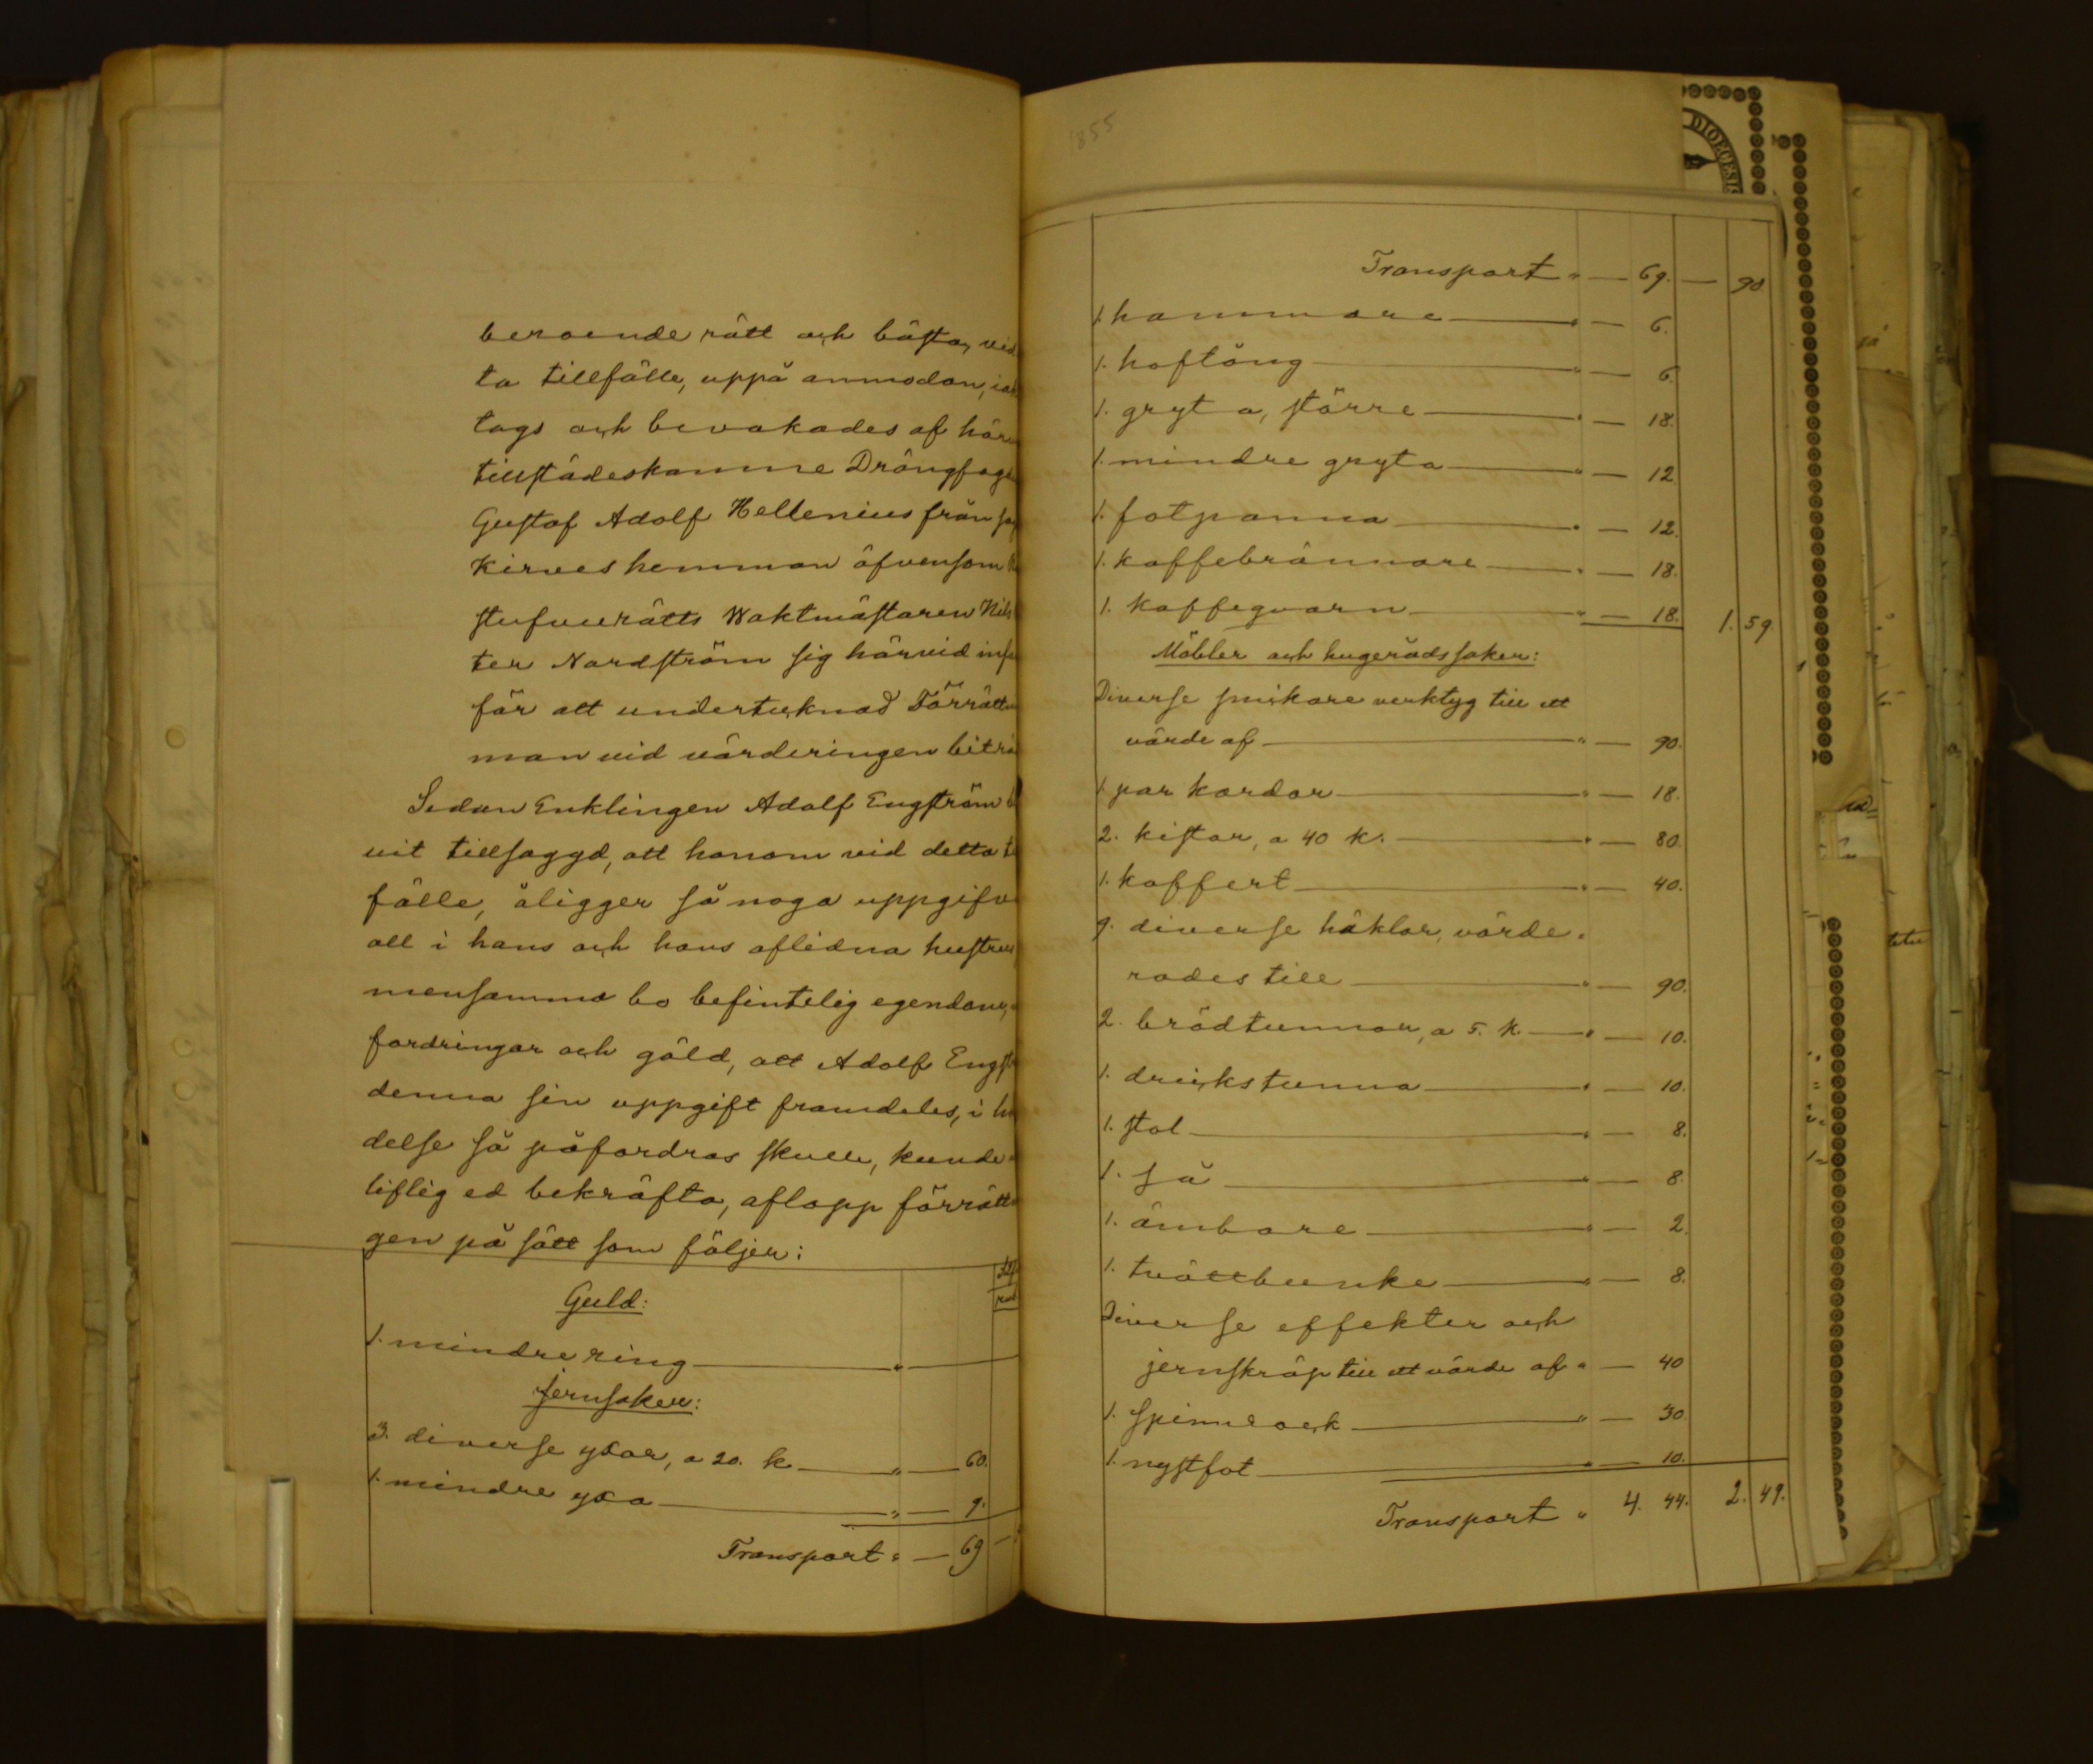 beroende rätt och bästa, vid
ta tillfälle, uppå anmodan,
togs och bevakades af här
tillstädeskomne Drängfog
Gustaf Adolf Hellenius från
Kirves hemman äfvensom
stufvurätts Waktmästaren Nils
ter Nordström sig härvid inf
för att undertecknad Förrätt
man vid värderingen biträ
Sedan Enklingen Adolf Engström
vit tillsaggd, att honom vid detta
fälle, åligger så noga uppgifva
all i hans och hans aflidna hustrus
mensamma bo befintelig egendom,
fordringar och gäld, att Adolf Engst
denna sin uppgift framdeles, i hä
delse så påfordras skulle, kunde
liflig ed bekräfta, aflopp förrätt
gen på sätt som följer:
Guld:
1. mindre ring — " —
Jernsaker:
3. diverse yxor, a 20. k — " — 60.
1. mindre yxa — " — 9.
Transport " — 69 —
1855
Transport " — 69. — 90
1. hammare — " — 6.
1. hoftång — " — 6.
1. gryta, större — " — 18.
1. mindre gryta — " — 12.
1. fotpanna — " — 12.
1. kaffebrännare — " — 18.
1. kaffeqvarn — " — 18. 1. 59.
Möbler och husgerådssaker:
Diverse snickare verktyg till ett
värde af — " — 90.
1. par kardor — " — 18.
2. kistor, a 40 k. — " — 80.
1. koffert — " — 40.
9. diverse häklor, värde-
rades till — " — 90.
2. brödtunnor, a 5. k. — " — 10.
1. drickstunna — " — 10.
1. stol — " — 8.
1. så — " — 8.
1. ämbare — " — 2.
1. tvättbunke — " — 8.
Diverse effekter och
jernskräp till ett värde af " — 40
1. spinnrock — " — 30.
1. nystfot — " — 10.
Transport " 4. 44. 2. 49.
DIOECESIS